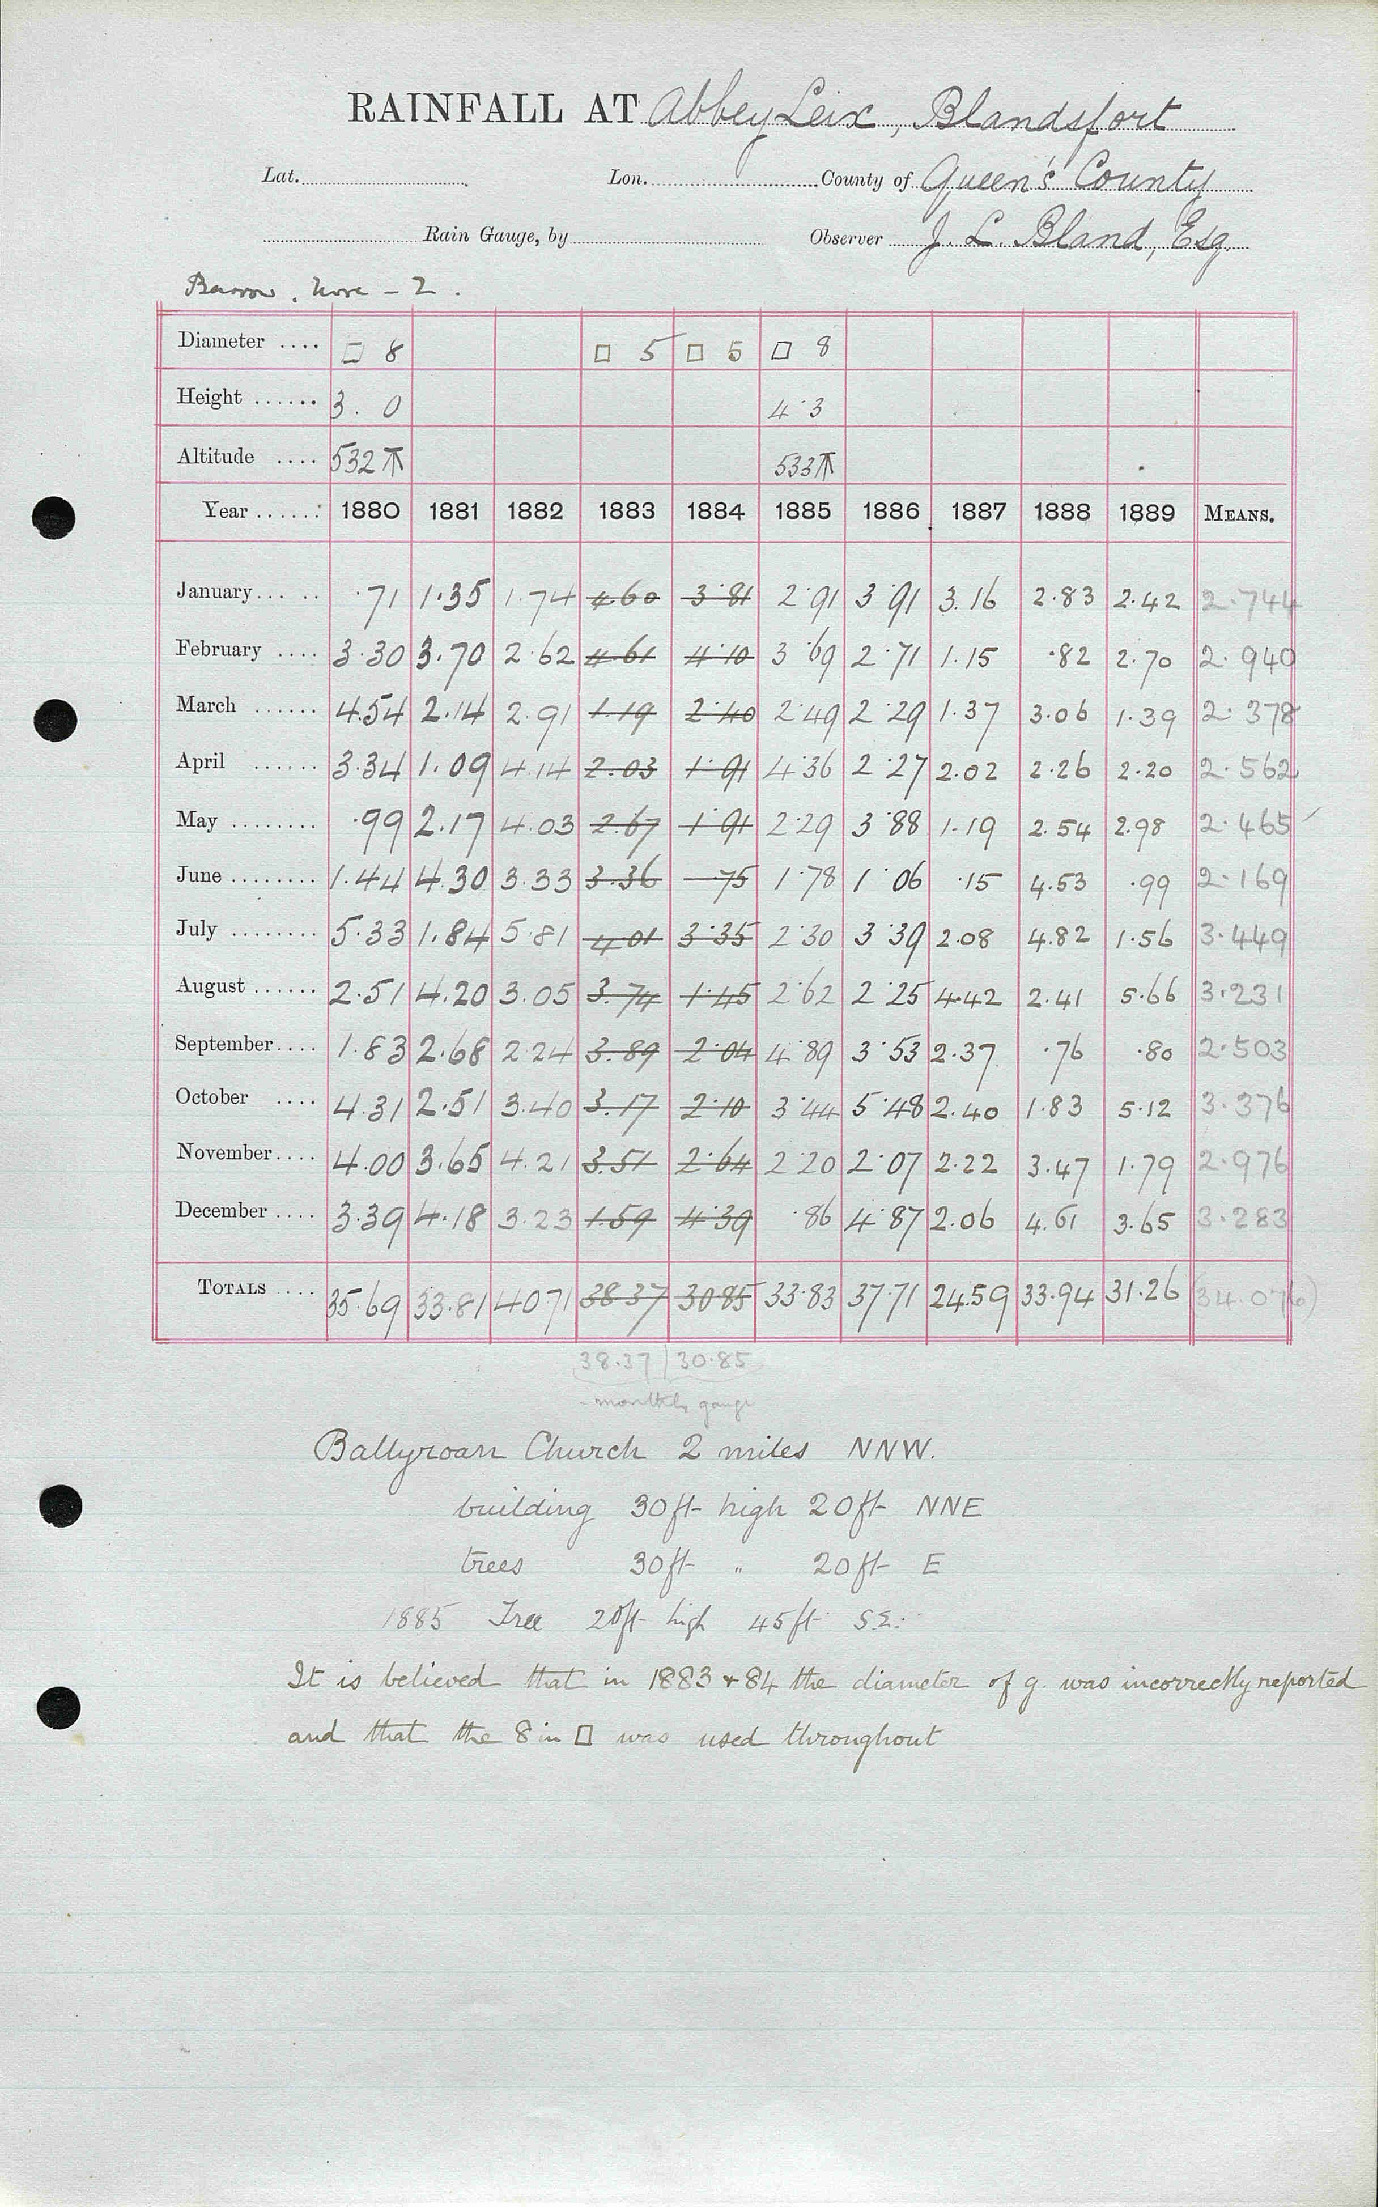 RAINFALL AT Abbey Leix, Blandsfort
Lat. Lon. County of Queen's County
Rain Gauge, by Observer J. L. Bland, Esq.
Barrow. Nore - 2.
Diameter .... □ 8 □ 5 □ 5 □ 8
Height ...... 3. 0 4·3
Altitude .... 532 ⚻ 533
Year ...... 1880 1881 1882 1883 1884 1885 1886 1887 1888 1889 MEANS.
January ·71 1·35 1·74 4·60 3·81 2·91 3·91 3.16 2.83 2.42 2.744
February 3·30 3.70 2·62 4·61 4·10 3·69 2·71 1.15 ·82 2.70 2.940
March 4.54 2.14 2.91 1.19 2·40 2·49 2·29 1.37 3.06 1.39 2.378
April 3.34 1.09 4.14 2.03 1·91 4·36 2·27 2.02 2.26 2.20 2.562
May ·99 2.17 4.03 2.67 1·91 2·29 3·88 1.19 2.54 2.98 2.465
June 1.44 4.30 3.33 3.36 ·75 1·78 1·06 ·15 4.53 .99 2.169
July 5.33 1.84 5.81 4·01 3·35 2·30 3·39 2.08 4.82 1.56 3.449
August 2.51 4.20 3.05 3.74 1·45 2·62 2·25 4.42 2.41 5.66 3.231
September 1.83 2.68 2.24 3.89 2·04 4·89 3·53 2.37 ·76 .80 2.503
October 4.31 2.51 3.40 3.17 2·10 3·44 5·48 2.40 1.83 5.12 3.376
November 4.00 3.65 4.21 3.51 2·64 2·20 2·07 2.22 3.47 1.79 2.976
December 3.39 4.18 3.23 1.59 4·39 ·86 4·87 2.06 4.61 3.65 3.283
TOTALS 35.69 33.81 40.71 38.37 30.85 33.83 37.71 24.59 33.94 31.26 (34.076)
38.37 30.85
monthly gauge
Ballyroan Church 2 miles NNW.
building 30ft high 20ft NNE
trees 30ft " 20ft E
1885 Tree 20ft high 45ft S.E.
It is believed that in 1883 + 84 the diameter of g. was incorrectly reported
and that the 8 in □ was used throughout